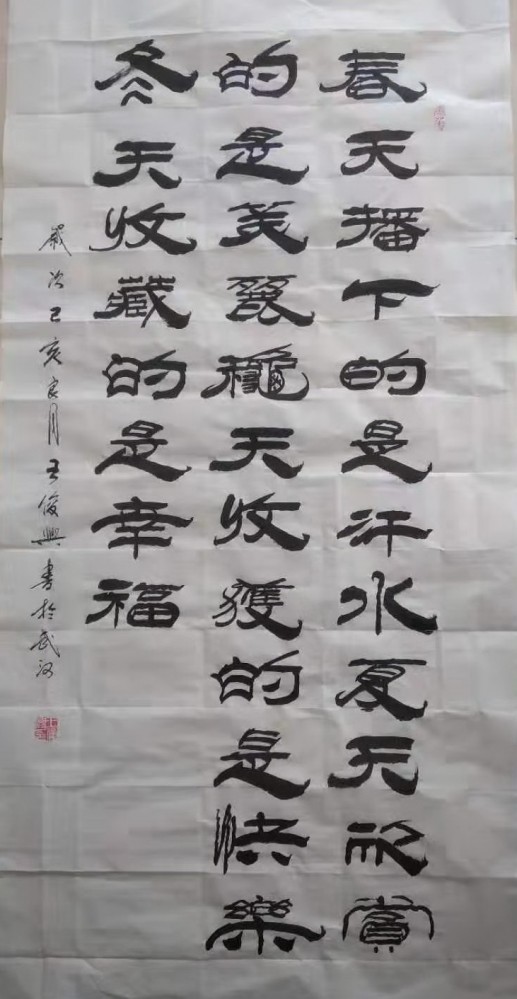 春天播下的是汗水夏天欣賞
的是美麗龝天收獲的是快樂
冬天收藏的是幸福
歲次己亥良月王俊興書於武汉